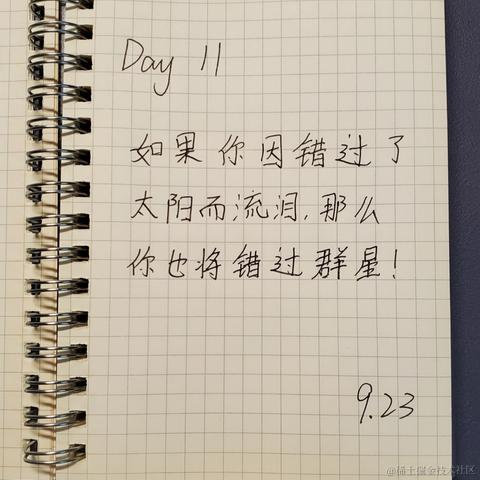 Day 11
如果你因错过了
太阳而流泪,那么
你也将错过群星!
9.23
@稀土掘金技术社区